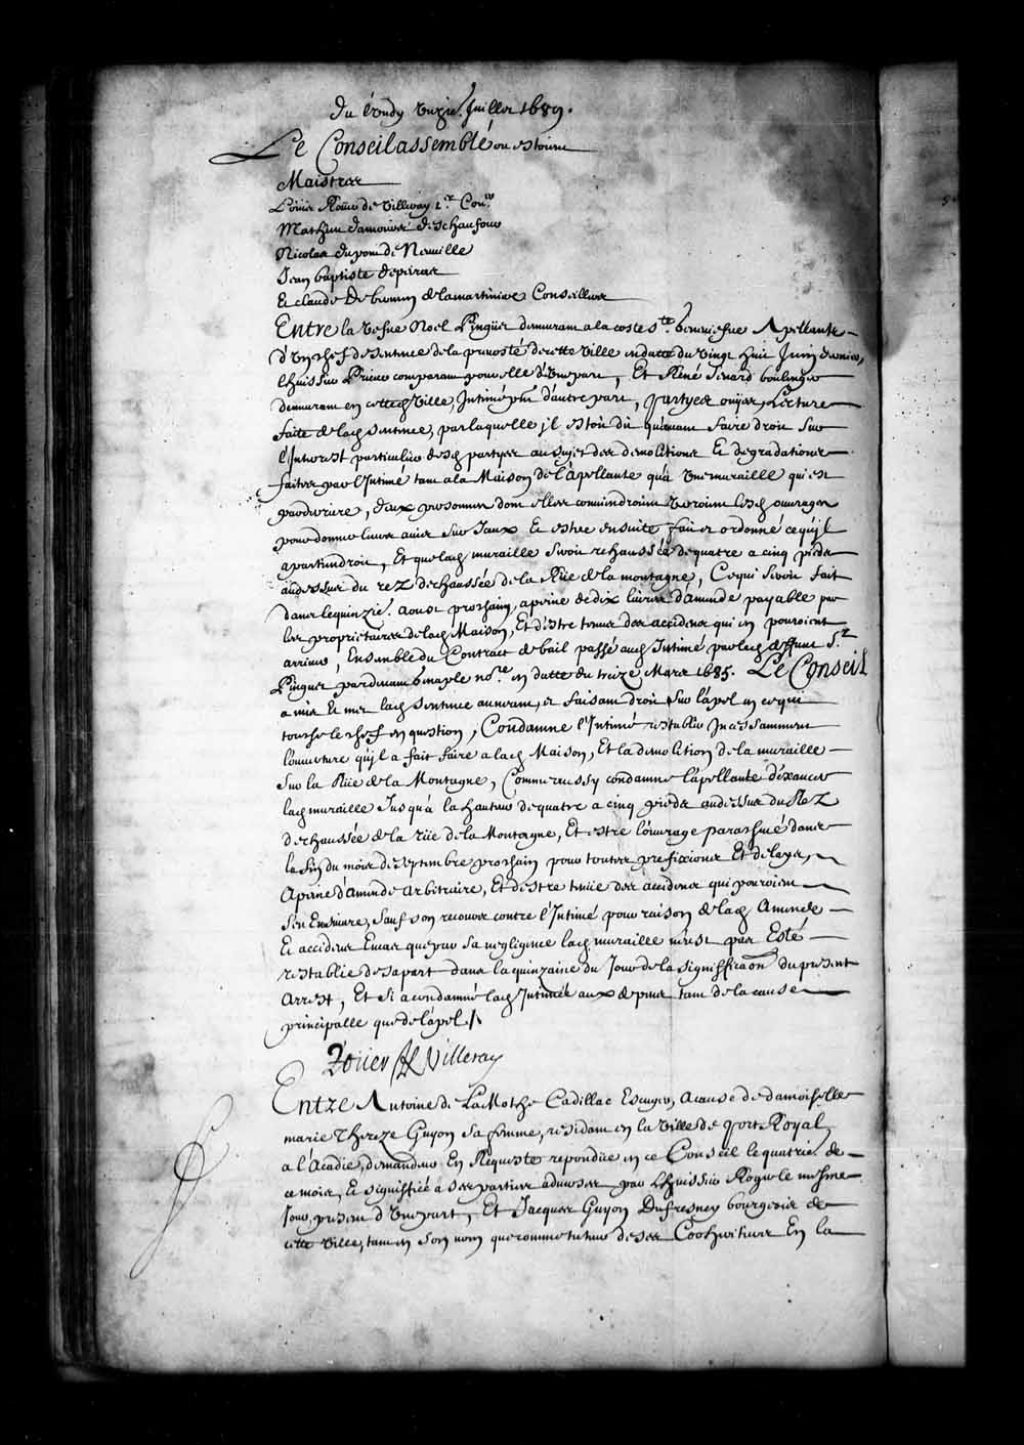 Du lundy unzie. Juillet 1689.
Le Conseil assemblé ou estoient
Maistres
Louis Roüer de Villeray 1er. Con.er
Mathieu damours deschaufour
Nicolas dupont de Neuuille
Jean baptiste depeiras
Et claude De bermen de lamartiniere Conseillers
Entre la Vefue Noel Pinguet demeurant a la coste Ste. Geneuiefue Apellante
d'Un chef de sentence de la preuosté de cette Ville en datte du Vingt huit Juin dernier,
lhuissier Prieur comparant pour elle d'Une part, Et René Siuard boulenger
demeurant en cette dt. Ville, Intimé d'autre part, partyes ouyes, Lecture
faite de lad sentence, par laquelle jl est dit quauant faire droit sur
l'Interest particulier desd partyes au sujet des demolitions Et degradations
faites par l'Intimé tant a la Maison de l'apellante qu'a Une muraille qui est
par derriere, deux personnes dont elles conuiendroient Verroient lesd ouurages
pour donner leurs auis sur Jceux Et estre ensuite fait et ordonné ce qu'jl
apartiendroit, Et que lad muraille seroit rehaussée de quatre a cinq pieds
audessus du rez dechaussée de la Rüe de la montagne, Ce qui seroit fait
dans le quinzie. aoust prochain, a peine de dix liures d'amende payable par
les proprietaires de lad Maison, Et d'estre tenus des accidens qui en pouroient
arriuer, Ensemble du Contract de bail passé aud Intimé par led deffunt Sr.
Pinguet pardeuant Genaple nore. en datte du treize Mars 1685. Le Conseil
a mis Et met lad sentence au neant, et faisant droit sur l'apel en ce qui
touche le chef en question, Condamne l'Intimé restablir Jncessamment
l'ouuerture qu'jl a fait faire a lad Maison, Et la demolition de la muraille
Sur la Rüe de la Montagne, Comme aussy condamne l'apellante d'exaucer
lad muraille Jusqu'a la hauteur de quatre a cinq pieds audessus du Rez
dechaussée de la rüe de la Montagne, Et estre l'ouurage parachué dans
la fin du mois de Septembre prochain pour toutes prefixions Et delays,
A peine d'amende arbitraire, Et destre tenüe des accidens qui pouroient
S'en Ensuiure, Sauf son recours contre l'Intimé pour raison de lad Amende
Et accidens En cas que par sa negligence lad muraille n'eust pas Esté
restablie de sa part dans la quinzaine du Jour de la signiffication du present
Arrest, Et si a condamné led Intimé aux depens tant de la cause
principalle que de l'apel /.
Roüer de Villeray
Entre Antoine de LaMothe Cadillac Escuyer, a cause de damoiselle
marie Thereze Guyon sa femme, residant en la Ville de port Royal
a l'Acadie, demandeur En Requeste repondüe en ce Conseil le quatrie. de
ce mois, Et signiffiée a ses parties aduerses par Lhuissier Roger le mesme
Jour, present d'Une part, Et Jacques Guyon Dufresnoy bourgeois de
cette Ville, tant en son nom que comme tuteur de ses Cohéritiers En la